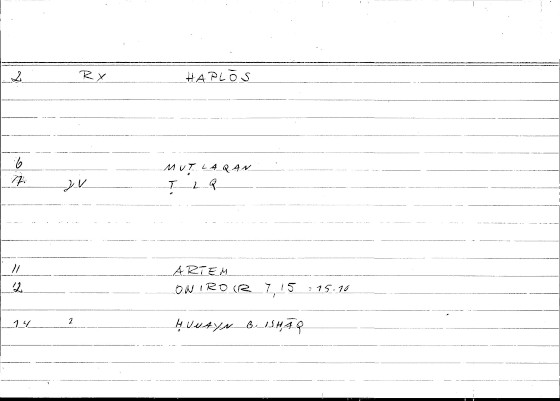 2 RX HAPLŌS
6 MUṬLAQAN
7. JV Ṭ L Q
11 ARTEM
12 ONIROCR 7,15 :15.10
14 2 ḤUNAYN B. ISḤĀQ